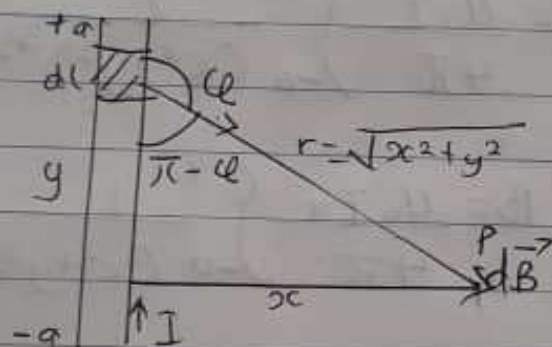 +a
dl
φ
r = √x²+y²
y
π-φ
P
dB⃗
x
-a
↑ I